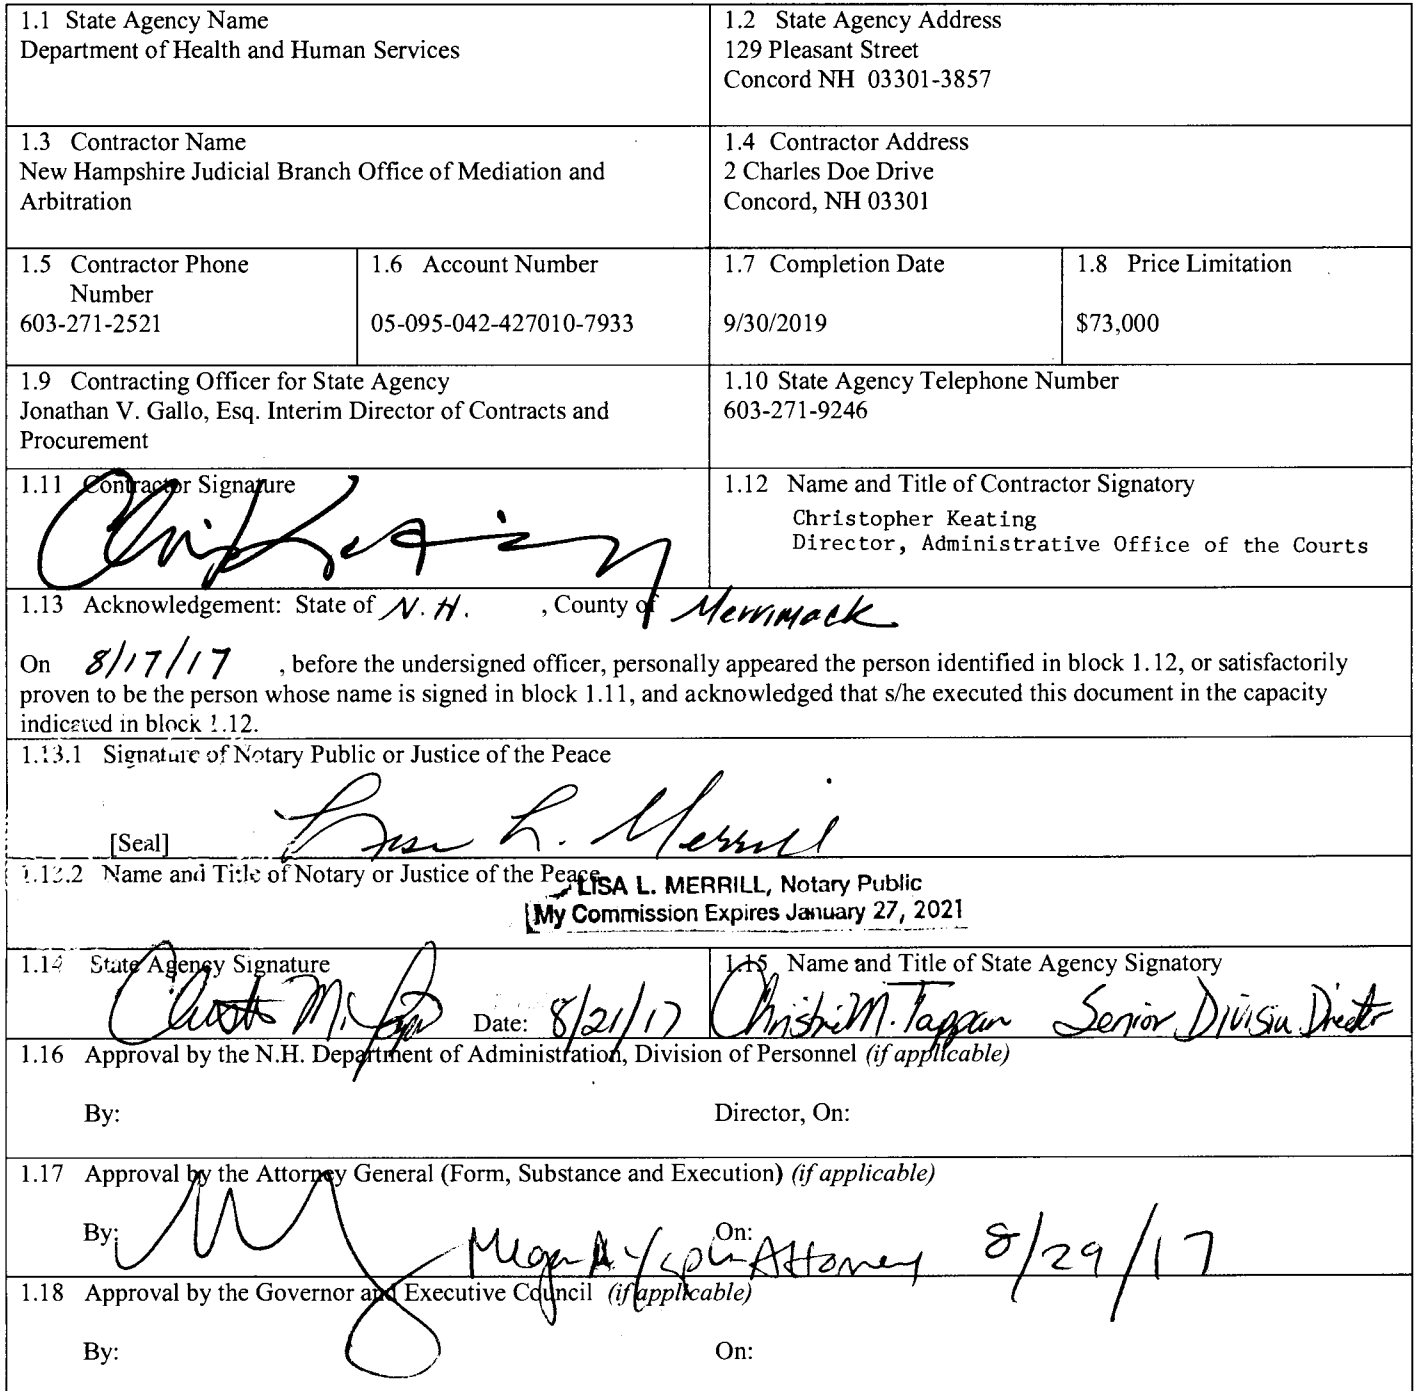 1.1 State Agency Name
Department of Health and Human Services
1.2 State Agency Address
129 Pleasant Street
Concord NH 03301-3857
1.3 Contractor Name
New Hampshire Judicial Branch Office of Mediation and
Arbitration
1.4 Contractor Address
2 Charles Doe Drive
Concord, NH 03301
1.5 Contractor Phone
Number
603-271-2521
1.6 Account Number
05-095-042-427010-7933
1.7 Completion Date
9/30/2019
1.8 Price Limitation
$73,000
1.9 Contracting Officer for State Agency
Jonathan V. Gallo, Esq. Interim Director of Contracts and
Procurement
1.10 State Agency Telephone Number
603-271-9246
1.11 Contractor Signature
1.12 Name and Title of Contractor Signatory
Christopher Keating
Director, Administrative Office of the Courts
1.13 Acknowledgement: State of N.H. , County of Merrimack
On 8/17/17 , before the undersigned officer, personally appeared the person identified in block 1.12, or satisfactorily
proven to be the person whose name is signed in block 1.11, and acknowledged that s/he executed this document in the capacity
indicated in block 1.12.
1.13.1 Signature of Notary Public or Justice of the Peace
Lisa L. Merrill
[Seal]
1.13.2 Name and Title of Notary or Justice of the Peace
LISA L. MERRILL, Notary Public
My Commission Expires January 27, 2021
1.14 State Agency Signature
Date: 8/21/17
1.15 Name and Title of State Agency Signatory
Christine M. Tappan Senior Division Director
1.16 Approval by the N.H. Department of Administration, Division of Personnel (if applicable)
By: Director, On:
1.17 Approval by the Attorney General (Form, Substance and Execution) (if applicable)
By: On:
Megan A. Attorney 8/29/17
1.18 Approval by the Governor and Executive Council (if applicable)
By: On: